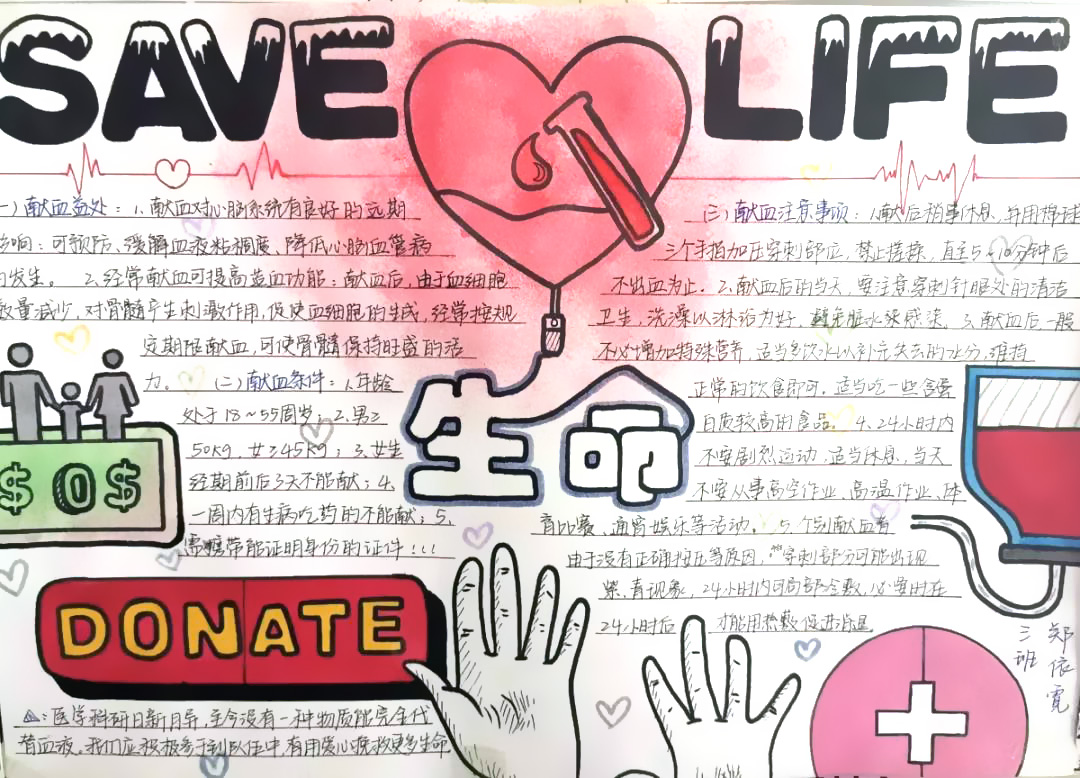 SAVE LIFE
一)献血益处：1.献血对心脑系统有良好的远期
影响：可预防、缓解血液粘稠度、降低心脑血管病
的发生。 2.经常献血可提高造血功能：献血后，由于血细胞
数量减少，对骨髓产生刺激作用，促使血细胞的生成，经常按规
定期限献血，可使骨髓保持旺盛的活
力。 (二)献血条件：1.年龄
处于18~55周岁；2.男≥
50kg，女≥45kg；3.女生
经期前后3天不能献；4.
一周内有生病吃药的不能献；5.
需携带能证明身份的证件！！！
(三)献血注意事项：1.献后稍事休息，并用棉球
三个手指加压穿刺部位，禁止揉搓，直至5~10分钟后
不出血为止。2.献血后的当天，要注意穿刺针眼处的清洁
卫生，洗澡以淋浴为好，避免脏水染感染，3.献血后一般
不必增加特殊营养，适当多饮水以补充失去的水分，维持
正常的饮食即可。适当吃一些含蛋
白质较高的食品。4.24小时内
不要剧烈运动，适当休息，当天
不要从事高空作业、高温作业、体
育比赛、通宵娱乐等活动。 5.个别献血者
由于没有正确按压等原因，穿刺部分可能出现
紫、青现象，24小时内可局部冷敷，必要时在
24小时后 才能用热敷促进消退
生命
$0$
DONATE
：医学科研日新月异，至今没有一种物质能完全代
替血液。我们应积极参于到队伍中，有用爱心挽救更多生命
三班
郑依霓